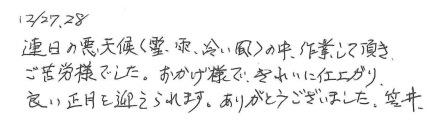 12/27.28
連日の悪天候(雪、雨、冷い風)の中、作業して頂き、
ご苦労様でした。おかげ様で、きれいに仕上がり、
良い正月を迎えられます。ありがとうございました。笠井